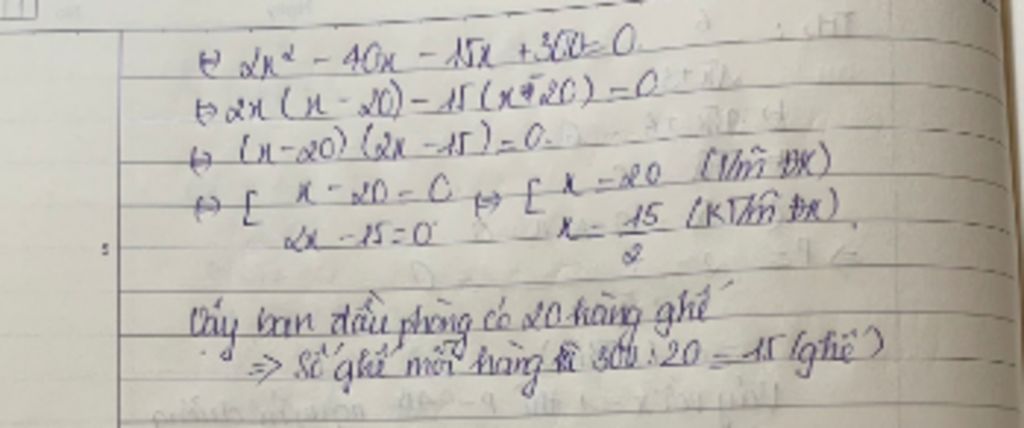 ⇔ 2x² - 40x - 15x + 300 = 0
⇔ 2x (x - 20) - 15 (x - 20) = 0
⇔ (x - 20) (2x - 15) = 0.
⇔ [ x - 20 = 0 ⇔ [ x = 20 (T/m ĐK)
2x - 15 = 0 x = 15/2 (KT/m ĐK).
Vậy ban đầu phòng có 20 hàng ghế
=> Số ghế mỗi hàng là 300 : 20 = 15 (ghế)